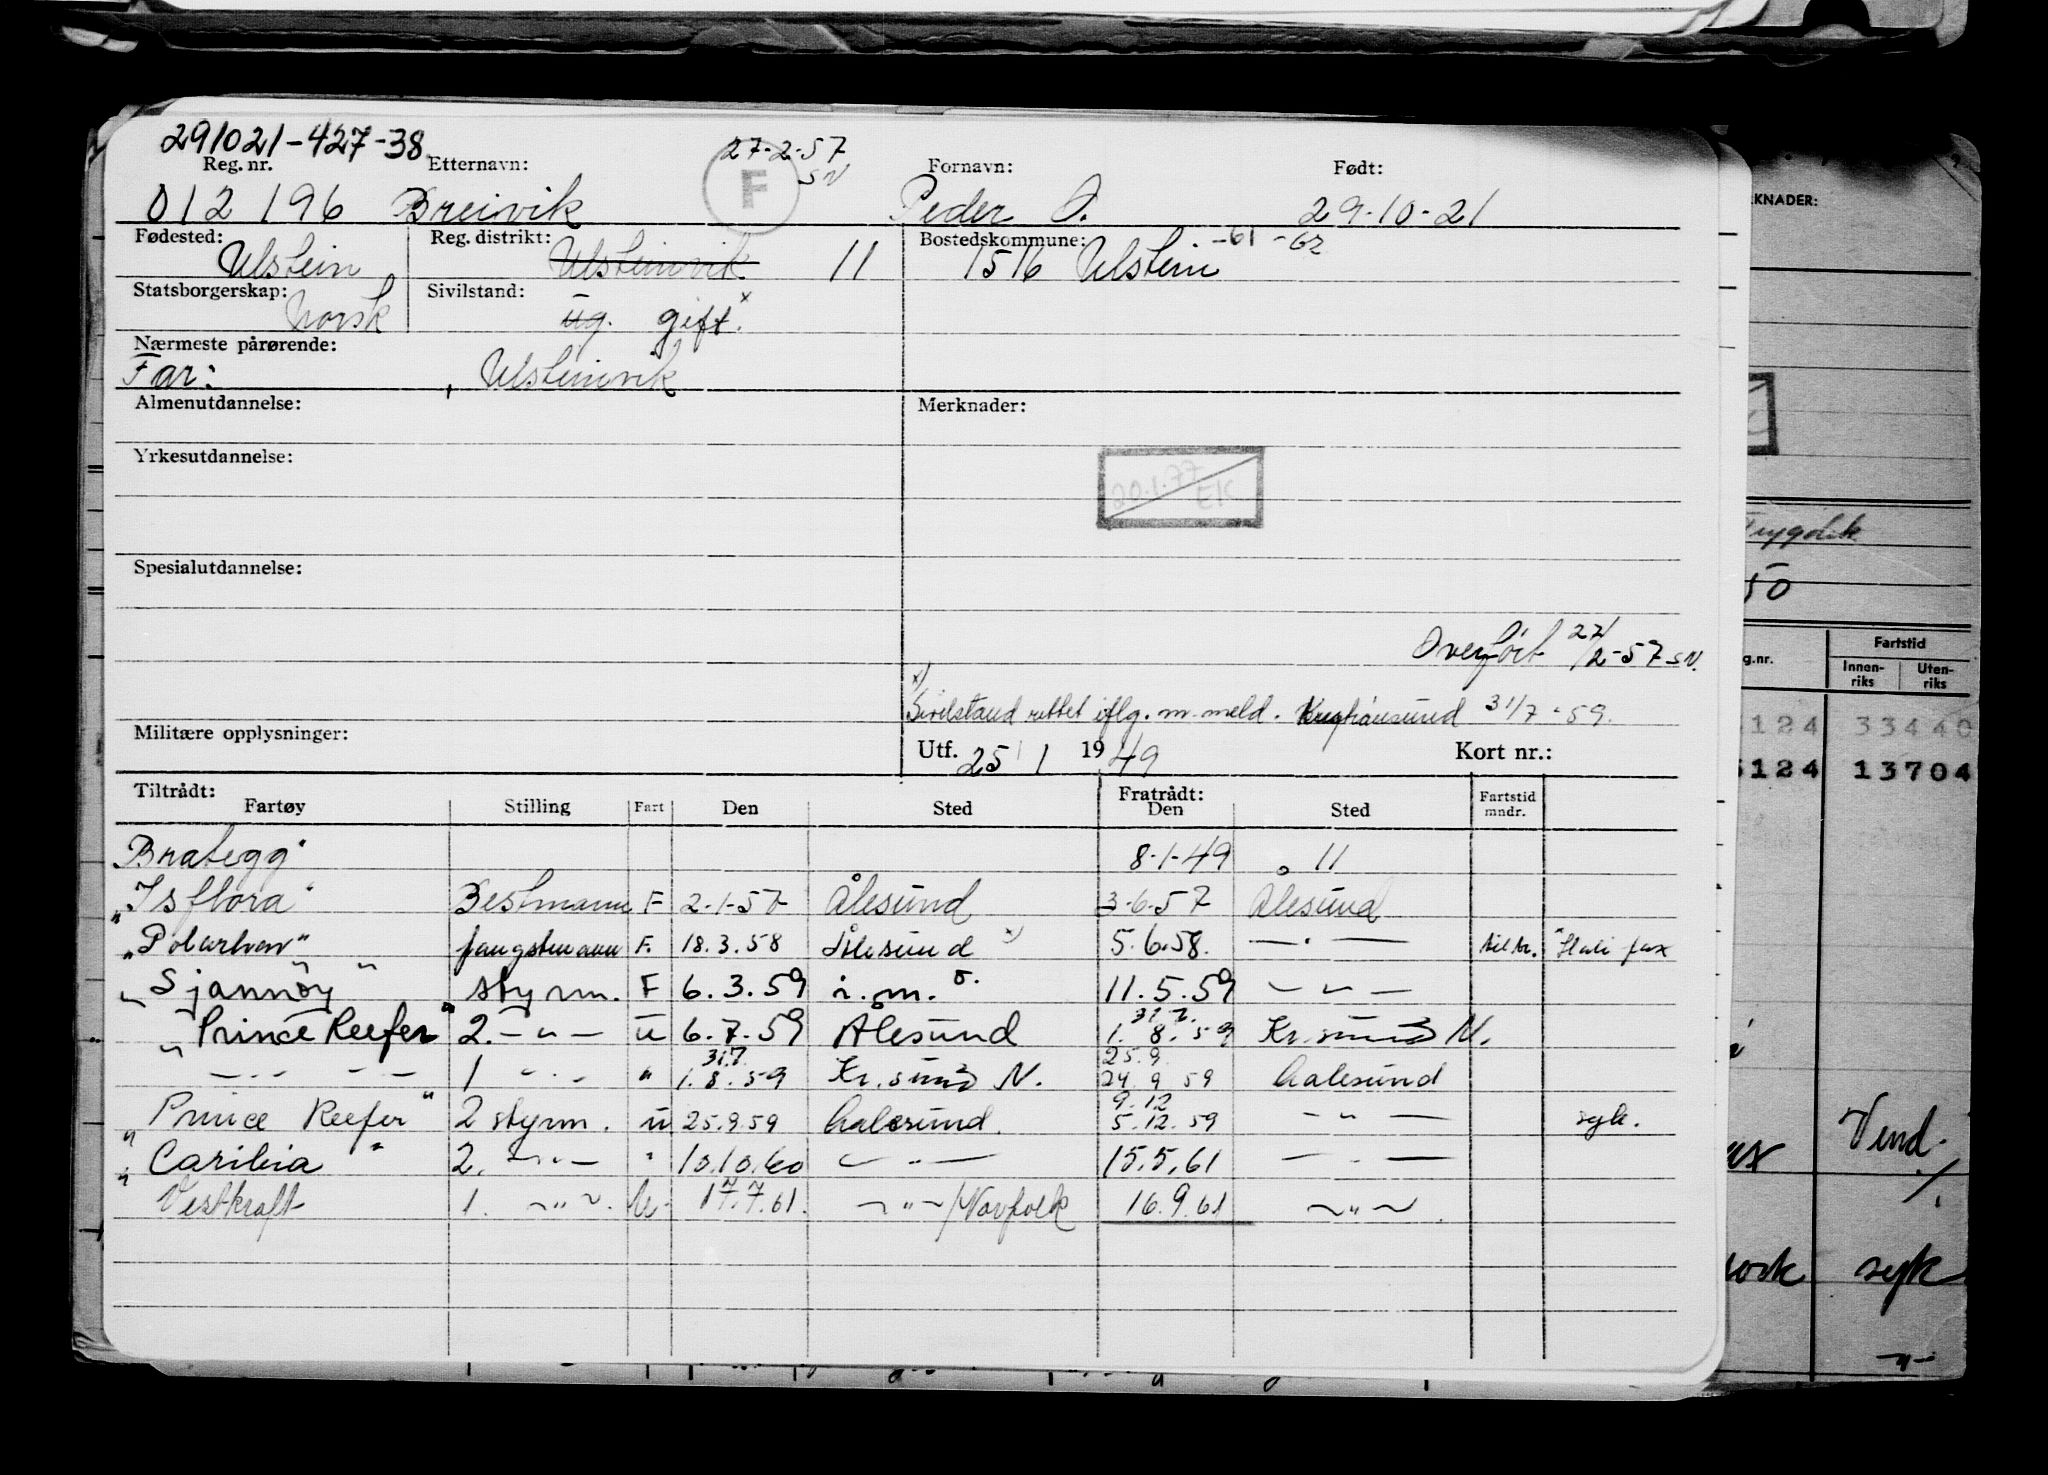 291021-427-38
27-2-57
SN
Reg. nr. Etternavn: F Fornavn: Født:
012 196 Breivik Peder O. 29-10-21
Fødested: Reg. distrikt: Bostedskommune: -61 -62
Ulstein Ulsteinvik 11 1516 Ulstein
Statsborgerskap: Sivilstand:
Norsk ug. gift. x
Nærmeste pårørende:
Far: , Ulsteinvik
Almenutdannelse: Merknader:
Yrkesutdannelse:
20.1.77 EK
Spesialutdannelse:
Overført 27/2-57 SN.
x) Sivilstand rettet iflg. m. meld. 31/7-59.
Militære opplysninger: Utf. 25/1 1949 Kort nr.:
Tiltrådt: Fratrådt:
Fartøy Stilling Fart Den Sted Den Sted Fartstid mndr.
Brategg" 8-1-49 11
"Isflora" Bestmann F 2-1-57 Ålesund 3-6-57 Ålesund
"Polarhav" fangstmann F. 18.3.58 Ålesund x) 5.6.58. — " — tiltr. "Halifax
"Sjannøy" styrm. F 6.3.59 i.m.o. 11.5.59 — " —
"Prince Reefer" 2. — " — u 6.7.59 Ålesund 31.7. 1.8.59 Kr.sund N.
— " — — " — 1 — " — " 31.7. 1.8.59 Kr.sund N. 25.9. 24.9.59 Aalesund
"Prince Reefer" 2 styrm. u 25.9.59 Aalesund. 9.12 5.12.59 — " — syk.
"Caribia" 2. — " — " 10.10.60 — " — 15.5.61 — " —
Vestkraft 1. — " — . U. 17.7.61. — " — /Norfolk 16.9.61 — " —
KNADER:
50
g.nr. Fartstid
Innen-riks Uten-riks
124 33440
5124 13704
Vend.
syk
— " —